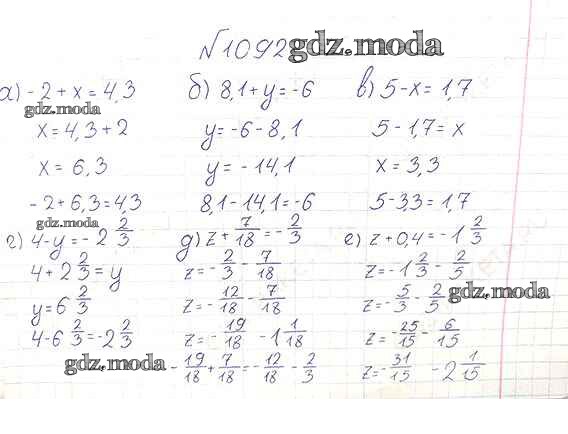 №1092 gdz.moda
а) -2 + x = 4,3 б) 8,1 + y = -6 в) 5 - x = 1,7
gdz.moda
x = 4,3 + 2 y = -6 - 8,1 5 - 1,7 = x
x = 6,3 y = -14,1 x = 3,3
-2 + 6,3 = 4,3 8,1 - 14,1 = -6 5 - 3,3 = 1,7
gdz.moda
г) 4 - y = -2 2/3 д) z + 7/18 = -2/3 е) z + 0,4 = -1 2/3
4 + 2 2/3 = y z = -2/3 - 7/18 z = -1 2/3 - 2/5
y = 6 2/3 z = -12/18 - 7/18 z = -5/3 - 2/5 gdz.moda
4 - 6 2/3 = -2 2/3 z = -19/18 - 1 1/18 z = -25/15 - 6/15
gdz.moda -19/18 + 7/18 = -12/18 - 2/3 z = -31/15 - 2 1/15